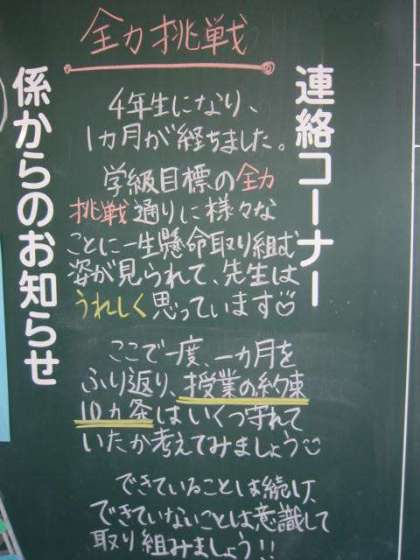 全力挑戦
連絡コーナー
係からのお知らせ
4年生になり、
1カ月が経ちました。
学級目標の全力
挑戦通りに様々な
ことに一生懸命取り組む
姿が見られて、先生は
うれしく思っています
ここで一度、一カ月を
ふり返り、授業の約束
10カ条はいくつ守れて
いたか考えてみましょう
できていることは続け、
できていないことは意識して
取り組みましょう!!